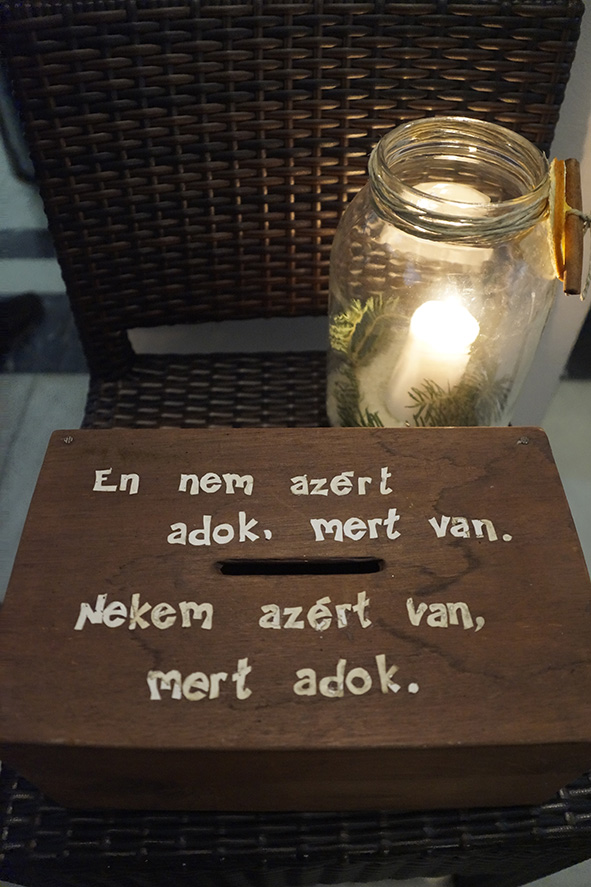 En nem azért
adok, mert van.
Nekem azért van,
mert adok.